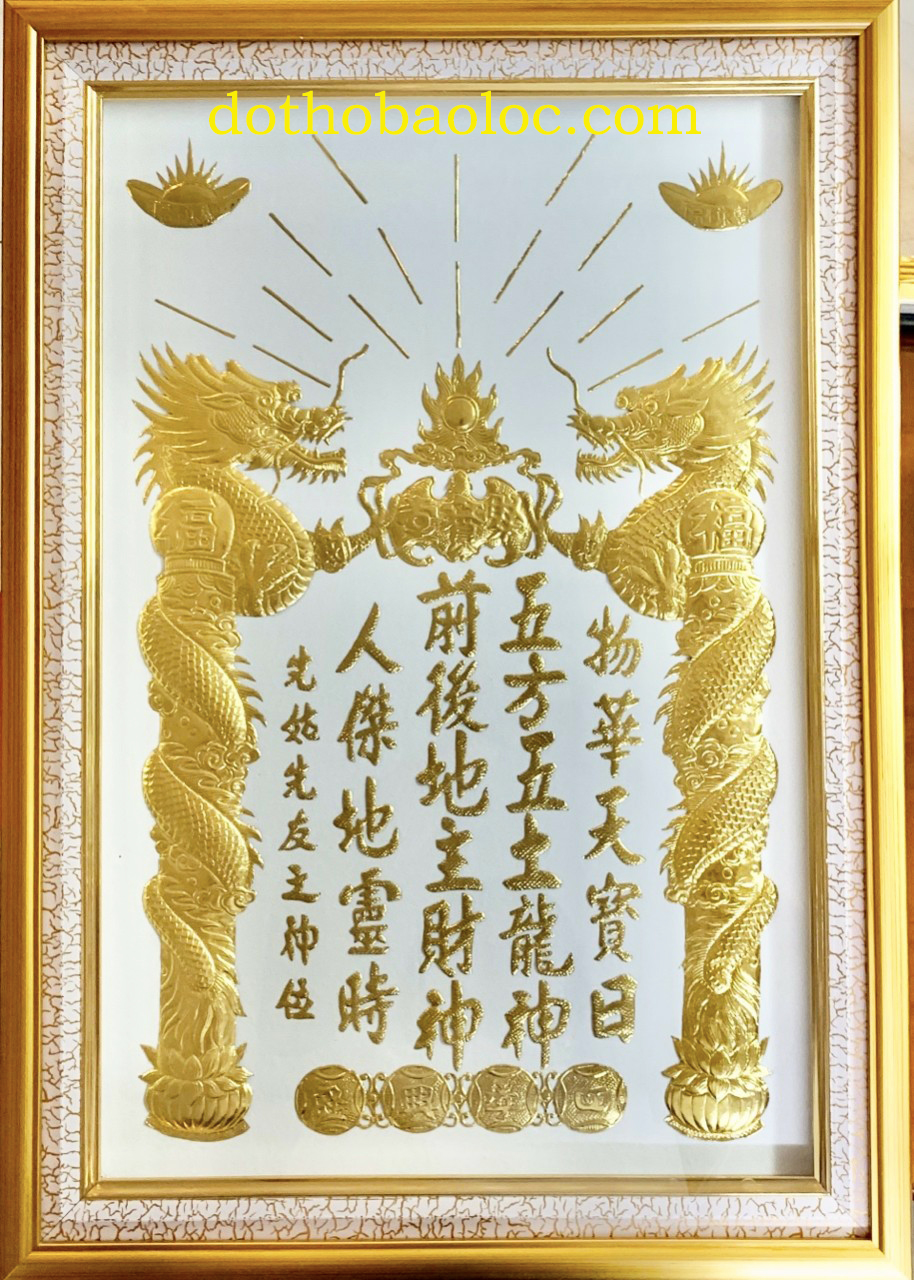 dothobaoloc.com
福
福
物華天寶日
五方五土龍神
前後地主財神
人傑地靈時
先姑先友之神伍